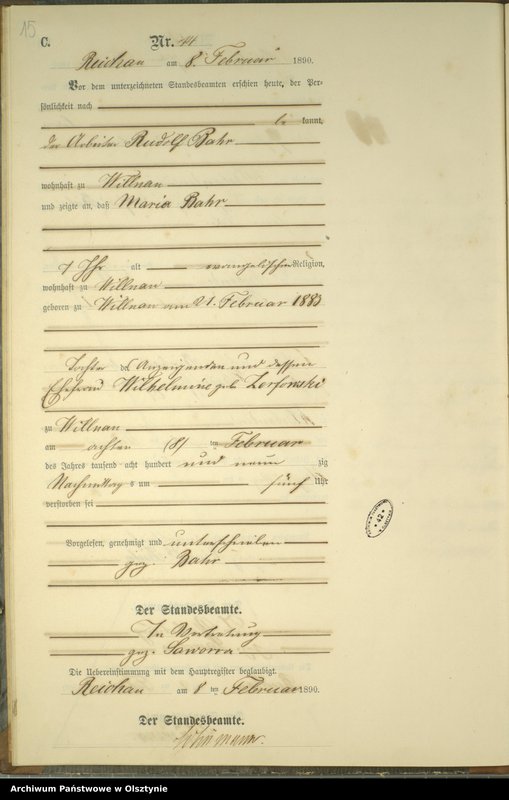 15
C.
Nr. 11
Reichau am 8. Februar 1890.
Vor dem unterzeichneten Standesbeamten erschien heute, der Per-
sönlichkeit nach
be kannt,
der Arbeiter Rudolf Bahr
wohnhaft zu Willnau
und zeigte an, daß Maria Bahr
7 Jhr alt evangelischer Religion,
wohnhaft zu Willnau
geboren zu Willnau am 21. Februar 1883
Tochter des Anzeigenden und dessen
Ehefrau Wilhelmine geb.
zu Willnau
am achten (8) ten Februar
des Jahres tausend acht hundert und neun zig
Nachmittag s um fünf Uhr
verstorben sei
Vorgelesen, genehmigt und unterschrieben
gez. Bahr
Der Standesbeamte.
In Vertretung
gez. Saworra
Die Uebereinstimmung mit dem Hauptregister beglaubigt.
Reichau am 8 ten Februar 1890.
Der Standesbeamte.
42
Archiwum Państwowe w Olsztynie